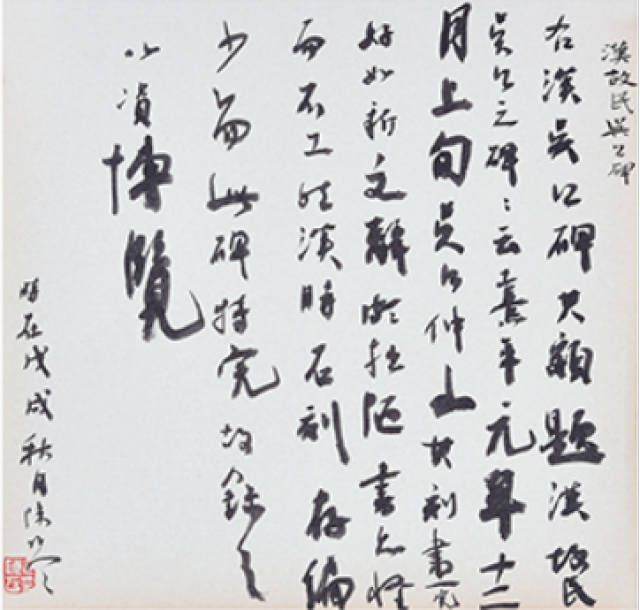 漢故民吳公碑
右漢吳公碑其額題漢故民
吳公之碑〻云熹平元年十二
月上旬吳公仲山其刻畫完
好如新文辭尤拙陋書亦怪
而不工然漢時石刻存編
少而此碑特完故錄之
以資博覽
時在戊戌秋月